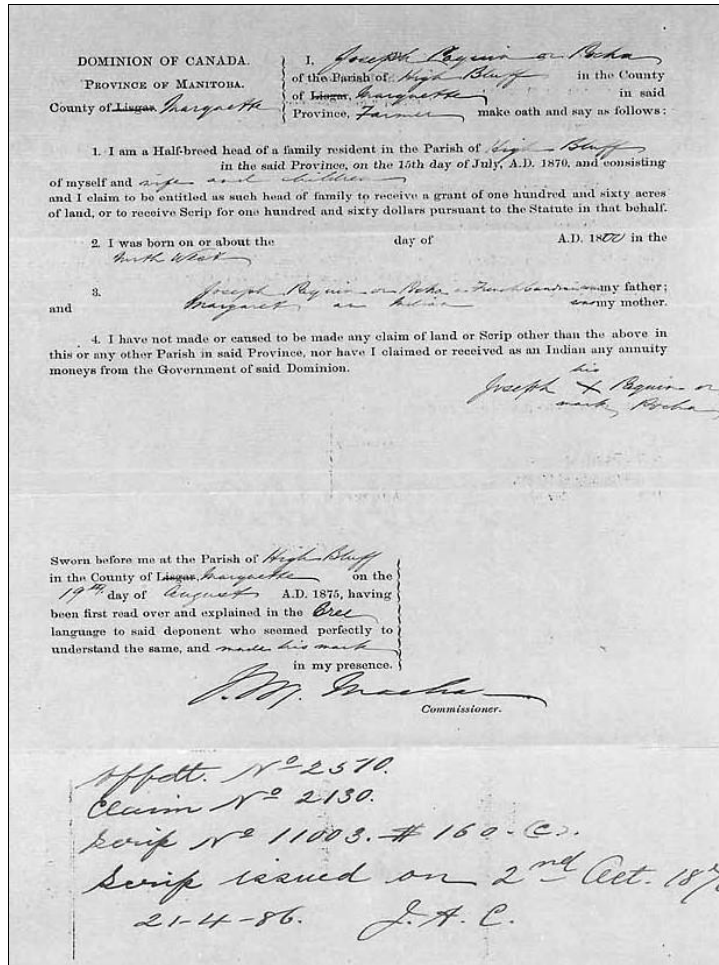 DOMINION OF CANADA.
PROVINCE OF MANITOBA.
County of Lisgar, Marquette
I, Joseph Paquin or Pocha
of the Parish of High Bluff in the County
of Lisgar, Marquette in said
Province, Farmer make oath and say as follows:
1. I am a Half-breed head of a family resident in the Parish of High Bluff
in the said Province, on the 15th day of July, A.D. 1870, and consisting
of myself and wife and children
and I claim to be entitled as such head of family to receive a grant of one hundred and sixty acres
of land, or to receive Scrip for one hundred and sixty dollars pursuant to the Statute in that behalf.
2. I was born on or about the day of A.D. 1800 in the
North West
3. Joseph Paquin or Pocha a French Canadian was my father;
and Margaret an Indian was my mother.
4. I have not made or caused to be made any claim of land or Scrip other than the above in
this or any other Parish in said Province, nor have I claimed or received as an Indian any annuity
moneys from the Government of said Dominion.
his
Joseph X Paquin or
mark Pocha
Sworn before me at the Parish of High Bluff
in the County of Lisgar, Marquette on the
19th day of August A.D. 1875, having
been first read over and explained in the Cree
language to said deponent who seemed perfectly to
understand the same, and made his mark
in my presence.
Commissioner.
Affdt. No 2570.
Claim No 2130.
Scrip No 11003. $160.(C).
Scrip issued on 2nd Oct. 187
21-4-86. J.A.C.